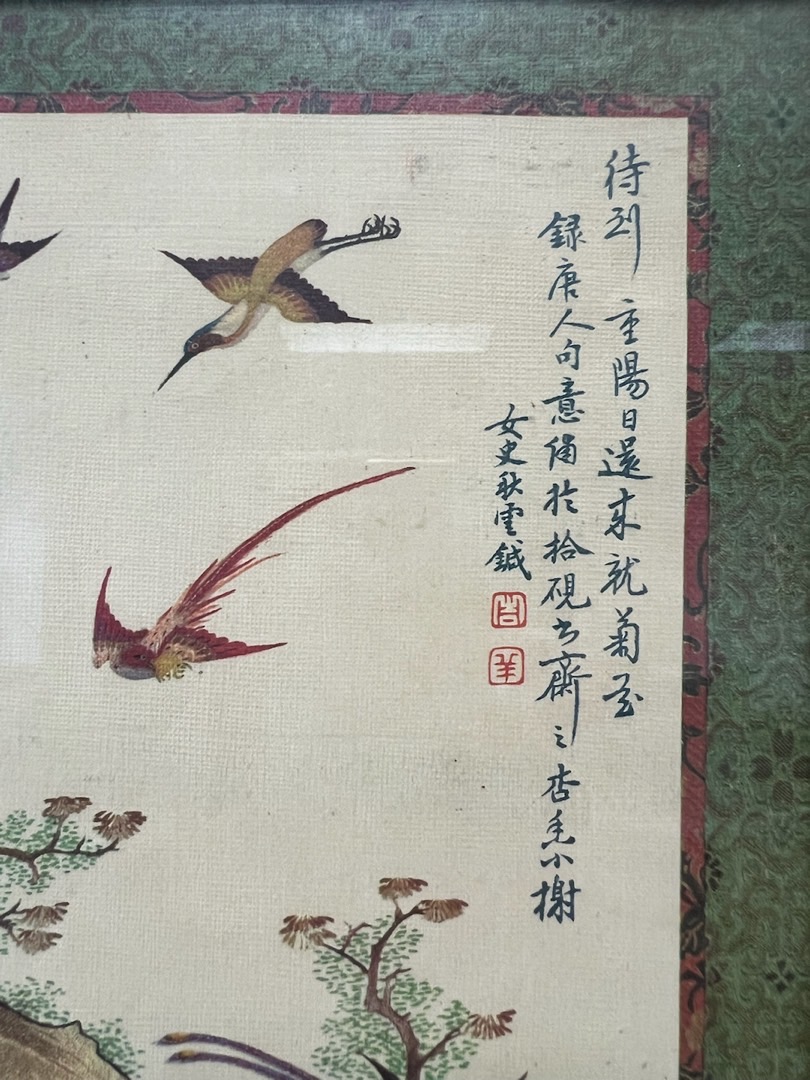 待到重陽日還來就菊花
録唐人句意繡於拾硯書齋之杏垂小榭
女史秋雲鍼